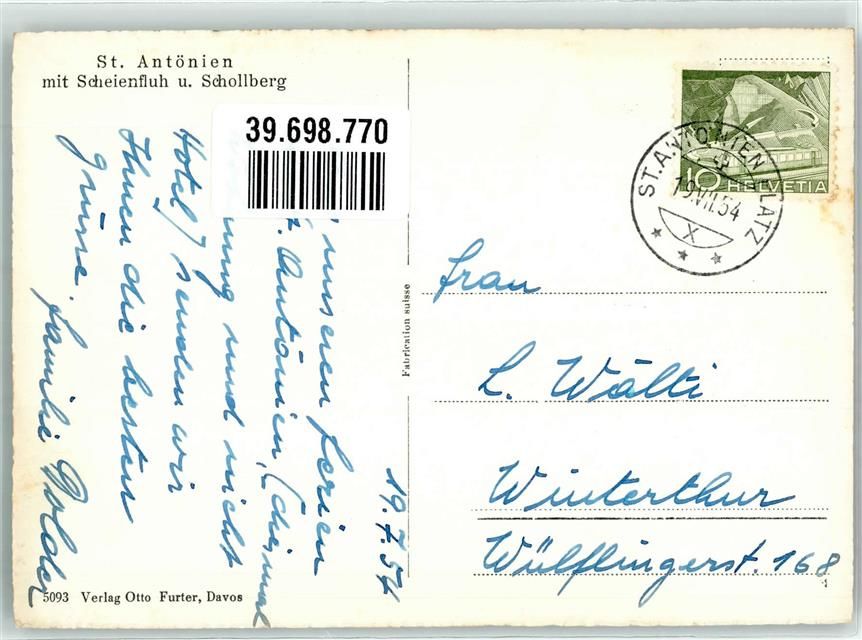 St. Antönien
mit Scheienfluh u. Schollberg
39.698.770
19.7.54
unseren Ferien
Antönien, (diesmal
und nicht
Hotel) senden wir
Ihnen die besten
Grüsse. Familie Dolder
Fabrication suisse
ST. ANTÖNIEN PLATZ
19.VII.54
X
10 HELVETIA
Frau
L. Wälti
Winterthur
Wülflingerst. 168
5093 Verlag Otto Furter, Davos